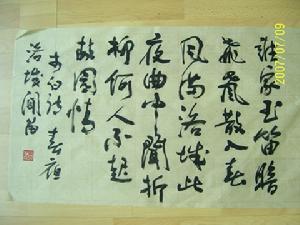 誰家玉笛暗
飛聲散入春
風滿洛城此
夜曲中聞折
柳何人不起
故園情
李白詩春夜
洛城聞笛
2007/07/09